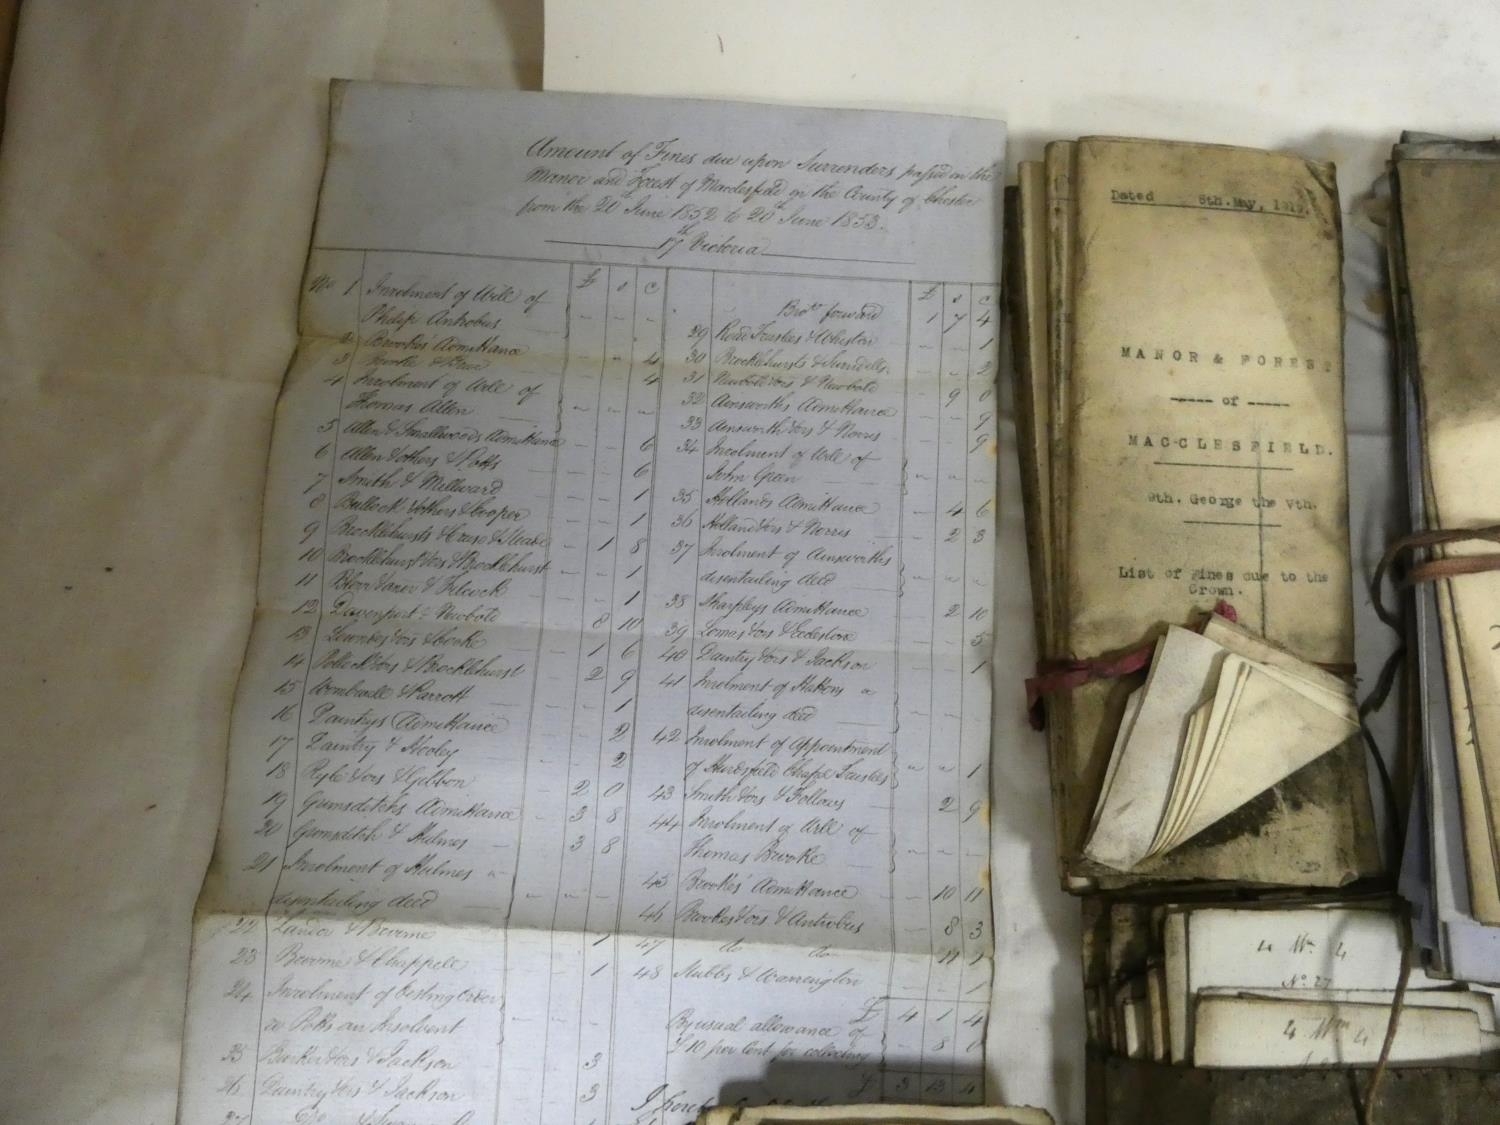 Amount of Fines due upon Surrenders passed in the
Manor and Forest of Macclesfield in the County of Chester
from the 20 June 1852 to 20th June 1853.
17th Victoria
£ s c
No 1 Inrolment of Will of
Philip Antrobus - - -
2 Brookes Admittance - " 4
3 Brooke & - - 4
4 Inrolment of Will of
Thomas Allen - - -
5 Allen & Smallwoods Admittance - - 6
6 Allen & others & Potts - - 6
7 Smith & Millward - - 1
8 Bullock & others & Cooper - - 1
9 Brocklehursts & Cruso & - 1 8
10 Brocklehurst & ors & Brocklehurst - - 1
11 - - 1
12 Davenport & Newbold 8 10
13 Lowndes & ors & Cooke - 1 6
14 Pollock & ors & Brocklehurst - 2 9
15 Wombwell & Parrott - - 1
16 Daintrys Admittance 2
17 Daintry & Hooley - - 2
18 Ryle & ors & Gibbon - 2 0
19 Gumsditchs Admittance - 3 8
20 Gumsditch & Hulmes - 3 8
21 Inrolment of Hulmes
disentailing deed - - -
22 & Broome 1
23 Broome & Chappell 1
24 Inrolment of Vesting Order
Potts an Insolvent - - -
25 Barker & ors & Jackson 3
26 Daintry & ors & Jackson 3
£ s c
Brot forward 1 7 4
29 Road Trustees & - - 1
30 Brocklehursts & - - 2
31 Newbold & ors & Newbold - 9 0
32 Ainsworths Admittance - - 9
33 Ainsworth & ors & Norris - - 9
34 Inrolment of Will of
John Green - - -
35 Hollands Admittance - 4 6
36 Holland & ors & Norris - 2 3
37 Inrolment of Ainsworths
disentailing deed " " "
38 Sharpleys Admittance 2 10
39 Lomas & ors & Eccleston - - 5
40 Daintry & ors & Jackson - - 1
41 Inrolment of Hattons
disentailing deed - - -
42 Inrolment of Appointment
of Hurdsfield Chapel Trustees " " 1
43 Smith & ors & Follows 2 9
44 Inrolment of Will of
Thomas Brooke - - -
45 Brookes' Admittance - 10 11
46 Brookes & ors & Antrobus - 8 3
47 do do 11 1
48 Stubbs & Warrington - - 1
£ 4 1 4
By usual allowance of
£10 per Cent for collecting - 8 0
£ 3 13 4
Dated 6th. May, 1919.
MANOR & FOREST
----- of -----
MACCLESFIELD.
9th. George the Vth.
List of Fines due to the
Crown.
4 Wm. 4
No. 27
4 Wm 4